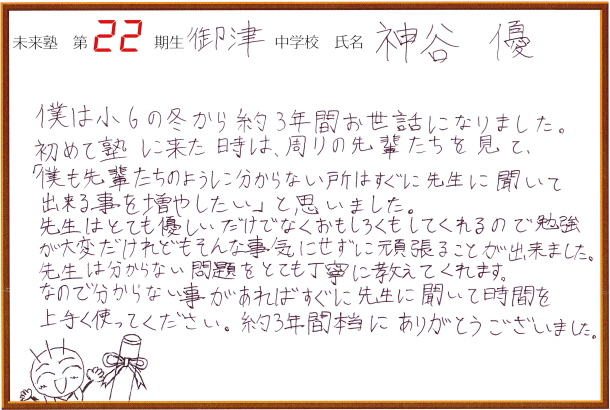 未来塾 第22期生 御津 中学校 氏名 神谷 優
僕は小6の冬から約3年間お世話になりました。
初めて塾に来た時は、周りの先輩たちを見て、
「僕も先輩たちのように分からない所はすぐに先生に聞いて
出来る事を増やしたい」と思いました。
先生はとても優しいだけでなくおもしろくもしてくれるので勉強
が大変だけれどもそんな事気にせずに頑張ることが出来ました。
先生は分からない問題をとても丁寧に教えてくれます。
なので分からない事があればすぐに先生に聞いて時間を
上手く使ってください。約3年間本当にありがとうございました。